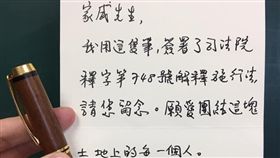 家威先生,
我用這隻筆,簽署了司法院
釋字第748號解釋施行法,
請您留念。願愛團結這塊
土地上的每一個人。